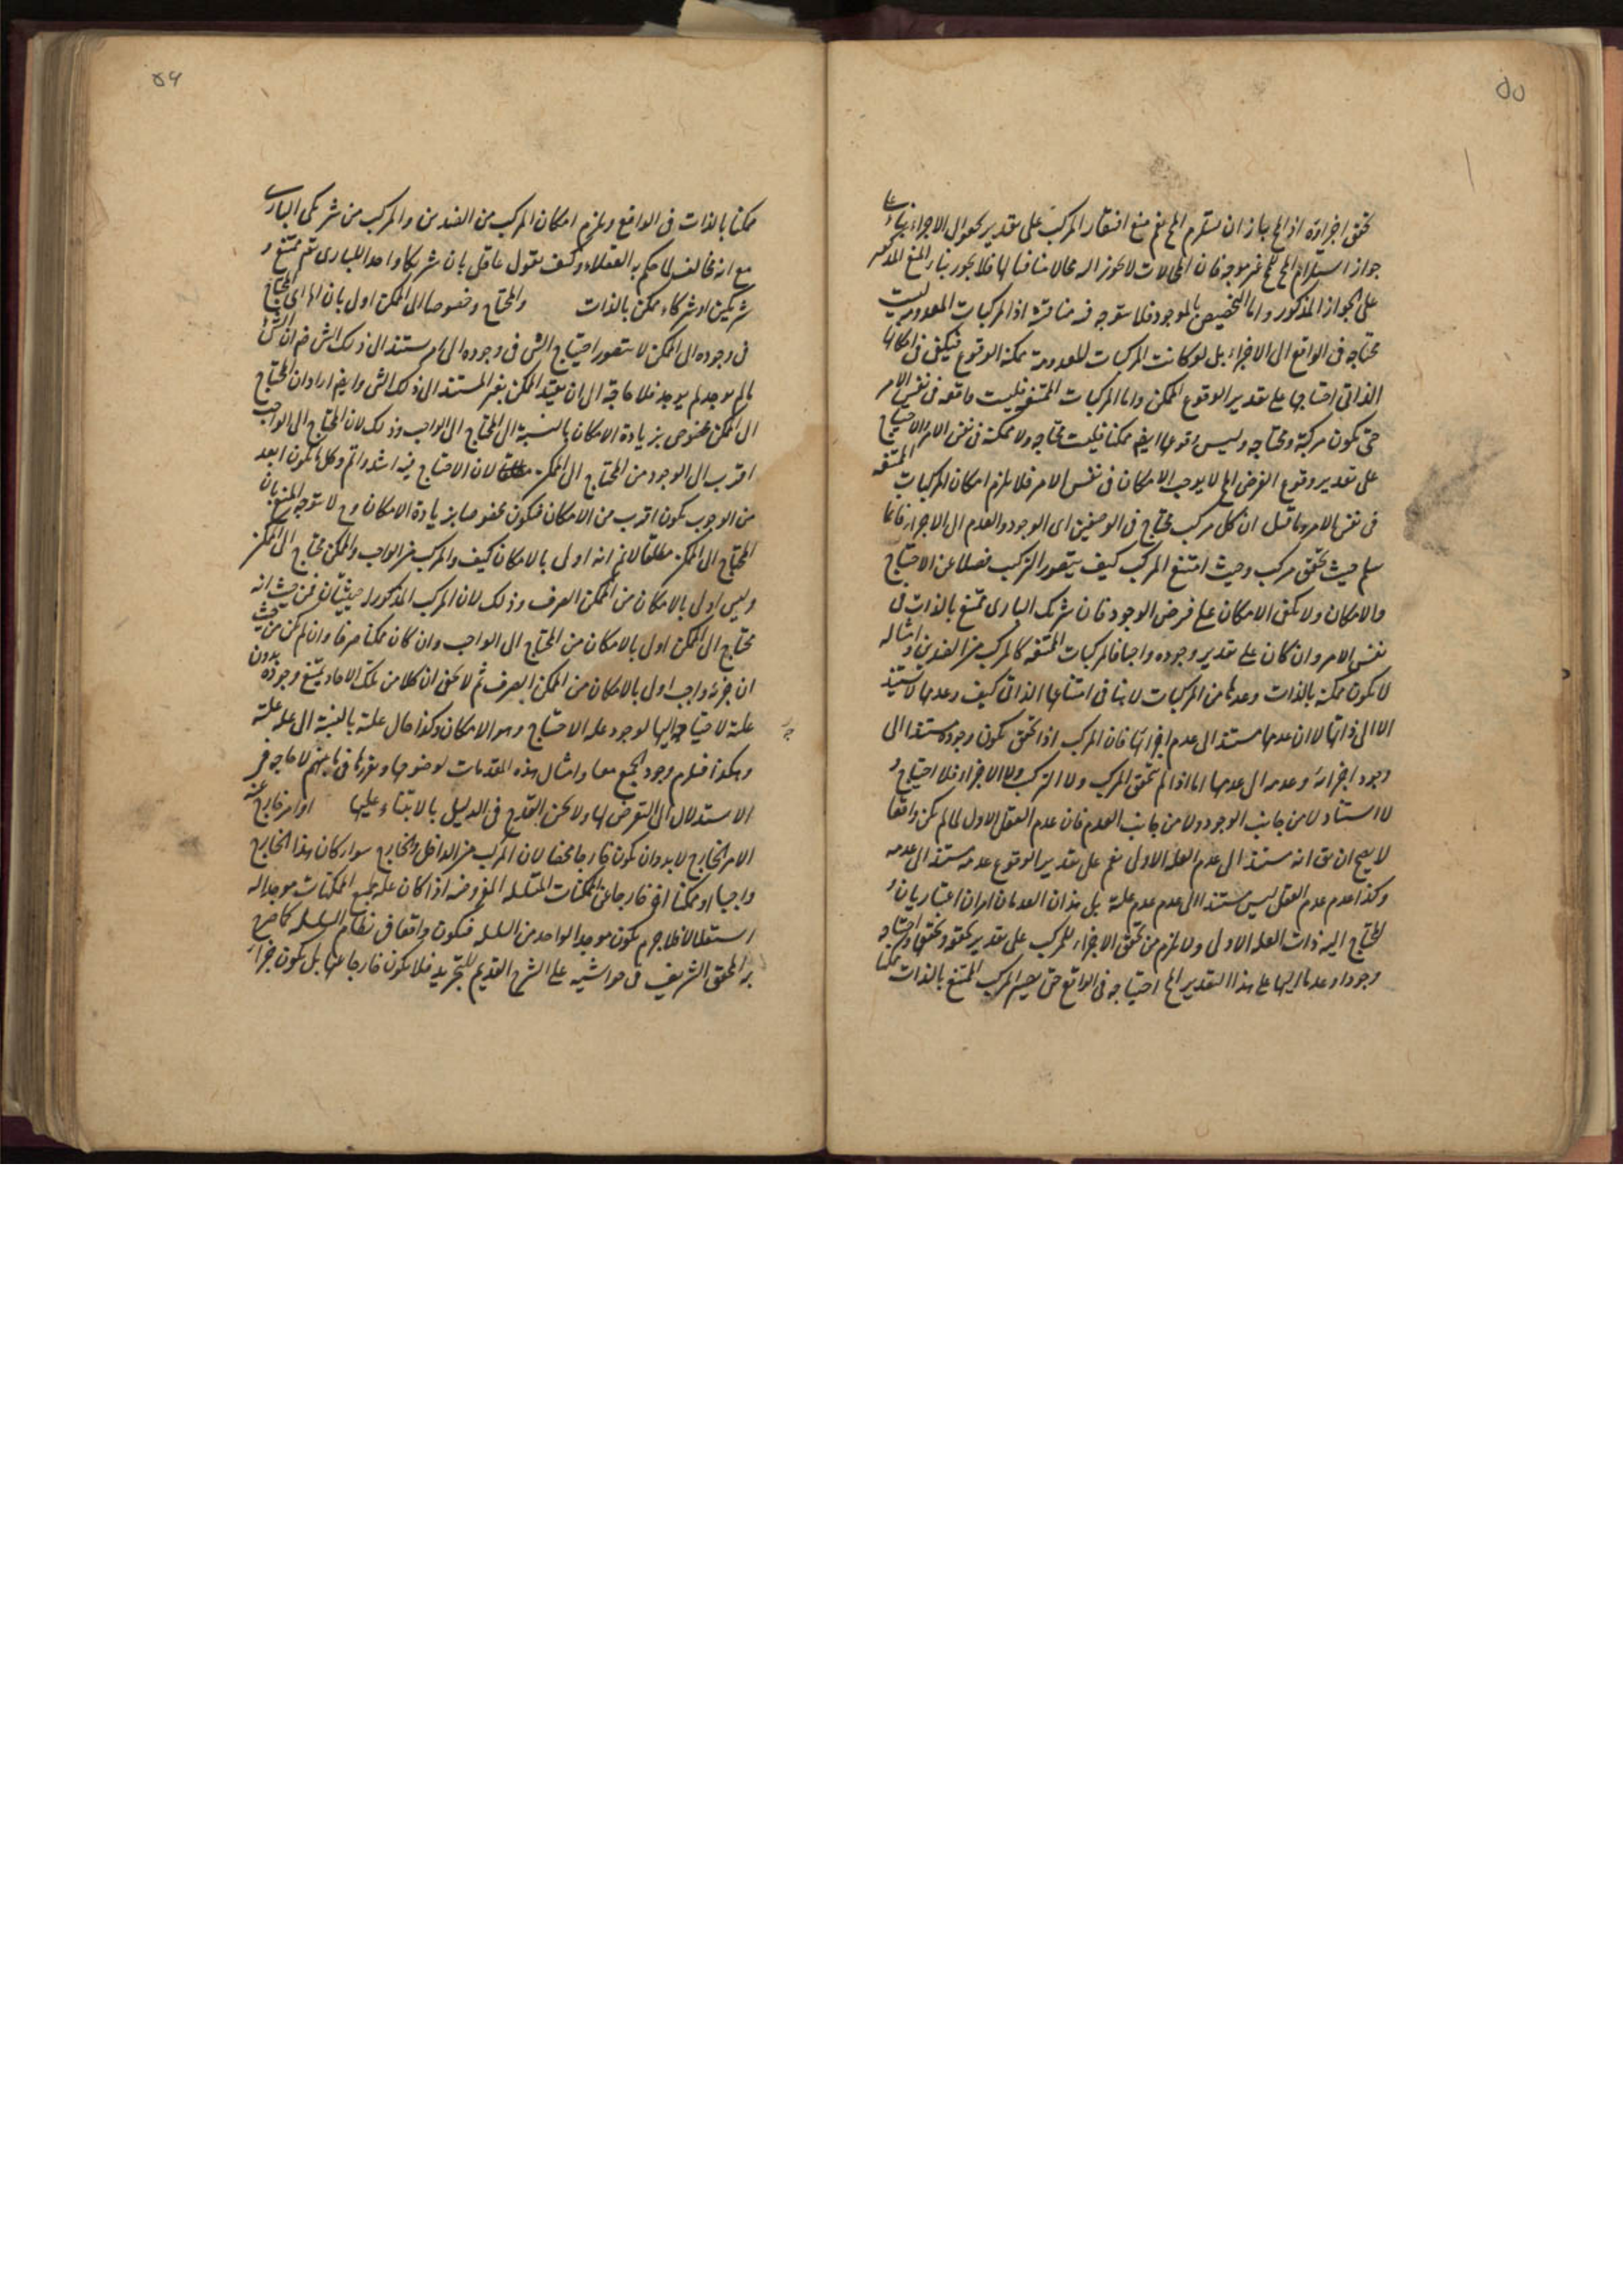 ۵۵
تحقق اجزاؤه اذ المح جاز ان يستلزم المح نعم منع افتقار المركب على تقدير حصول الاجزاء بناء على
جواز استلزام المح المح غير موجه فان المحالات لا يجوز محالا منافيا لها فلا يجوز بناء المنع المذكور
على الجواز المذكور واما التخصيص بالموجود فلا يتوجه فيه مناقشة اذ المركبات المعدومة ليست
محتاجه فى الواقع الى الاجزاء بل لو كانت المركبات المعدومة ممكنة الوقوع فيكفى فى امكانها
الذاتى احتياجها على تقدير الوقوع الممكن واما المركبات الممتنعه فليست واقعه فى نفس الامر
حتى تكون مركبة ومحتاجه وليس وقوعها ايضا ممكنا فليست محتاجه ولا ممكنة فى نفس الامر والاحتياج
على تقدير وقوع الفرض المح لا يوجب الامكان فى نفس الامر فلا يلزم امكان المركبات الممتنعه
فى نفس الامر وما قيل ان كل مركب محتاج فى الوصفين اى الوجود والعدم الى الاجزاء فانما
يسلم حيث تحقق مركب وحيث امتنع المركب كيف يتصور التركب فضلا عن الاحتياج
والامكان ولا يكفى الامكان على فرض الوجود فان شريك البارى ممتنع بالذات فى
نفس الامر وان كان على تقدير وجوده واجبا فالمركبات الممتنعه كالمركب من الضدين وامثاله
لا تكون ممكنة بالذات وعدها من المركبات لا ينافى امتناعها الذاتى كيف وعدمها لا يستند
الا الى ذاتها لا ان عدمها مستند الى عدم اجزائها فان المركب اذا تحقق يكون وجوده مستندا الى
وجود اجزائه وعدمه الى عدمها اما اذا لم يتحقق المركب ولا التركب ولا الاجزاء فلا احتياج و
لا استناد لا من جانب الوجود ولا من جانب العدم فان عدم العقل الاول لما لم يكن واقعا
لا يصح ان يق انه مستند الى عدم العلة الاولى نعم على تقدير الوقوع عدمه مستند الى عدمه
وكذا عدم عدم العقل ليس مستندا الى عدم عدم علته بل هذان العدمان امران اعتباريان و
المحتاج اليه ذات العلة الاولى ولا يلزم من تحقق الاجزاء للمركب على تقدير تحققه وتحققها واحتياجه
وجودا وعدما اليها على هذا التقدير المح احتياجه فى الواقع حتى يصير المركب الممتنع بالذات ممكنا
۵۶
ممكنا بالذات فى الواقع ويلزم امكان المركب من الضدين والمركب من شريكى البارى
مع انه مخالف لما حكم به العقلاء وكيف يقول عاقل بان شريكا واحدا للبارى تع ممتنع و
شريكين او شركاء ممكن بالذات والمحتاج وخصوصا الى الممكن اولى بان المحتاج
فى وجوده الى الممكن لا يتصور احتياج الشئ فى وجوده الى امر مستند الى ذلك الشئ
ما لم يوجد لم يوجد فلا حاجة الى ان يقيد الممكن بغير المستند الى ذلك الشئ وايضا اراد ان المحتاج
الى الممكن مخصوص بزيادة الامكان بالنسبة الى المحتاج الى الواجب وذلك لان المحتاج الى الواجب
اقرب الى الوجود من المحتاج الى الممكن لان الاحتياج فيه اشد واتم وكل ما يكون ابعد
من الوجوب يكون اقرب من الامكان فيكون مخصوصا بزيادة الامكان وح لا يتوجه المنع بان
المحتاج الى الممكن مطلقا لا نم انه اولى بالامكان كيف والمركب من الواجب والممكن محتاج الى الممكن
وليس اولى بالامكان من الممكن الصرف وذلك لان المركب المذكور له حيثيتان فمن حيث انه
محتاج الى الممكن اولى بالامكان من المحتاج الى الواجب وان كان ممكنا صرفا وان لم يكن من حيث
ان جزءه واجب اولى بالامكان من الممكن الصرف ثم لا يخفى ان كلا من تلك الاحاد يمتنع وجوده بدون
علته لاحتياجه اليها لوجود علة الاحتياج وهو الامكان وكذا حال علته بالنسبة الى علة علته
وهكذا فيلزم وجود الجميع معا وامثال هذه المقدمات لوضوحها وتقررها لا حاجه فى
الاستدلال الى التعرض لها ولا يحسن القدح فى الدليل بالابتناء عليها او امر خارج عنه
الامر الخارج لا بد وان يكون خارجا محضا لان المركب من الداخل والخارج سواء كان هذا الخارج
واجبا او ممكنا اخر خارجا عن الممكنات المتسلسلة المفروضه اذا كان علة لجميع الممكنات موجدا له
استقلالا فلا جرم يكون موجدا لواحد من السلسله فيكون واقعا فى نظام السلسله كما صرح
به المحقق الشريف فى حواشيه على الشرح القديم للتجريد فلا يكون خارجا عنها بل يكون جزءا